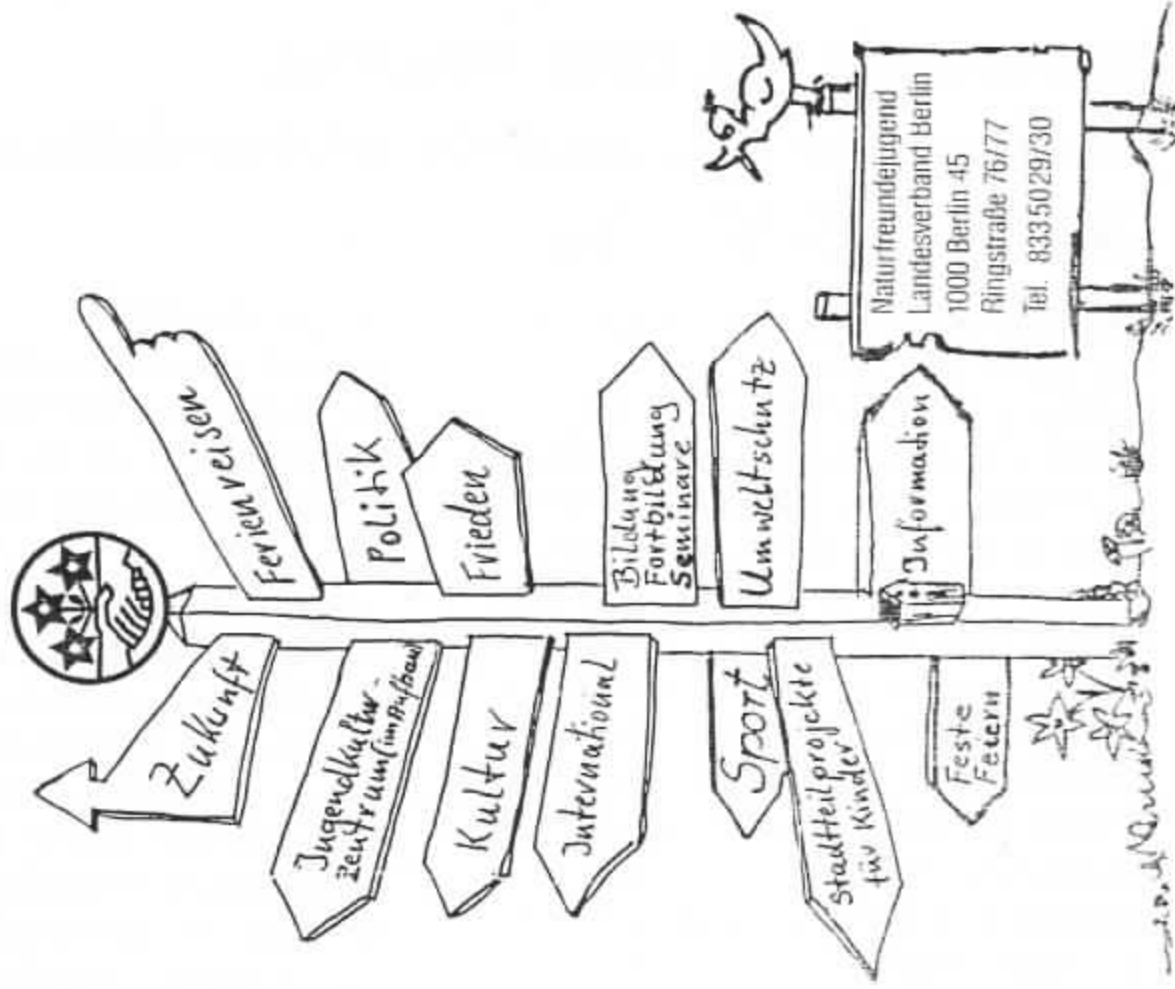 Zukunft
Ferienreisen
Jugendkultur-
zentrum (im Aufbau)
Politik
Kultur
Frieden
International
Bildung
Fortbildung
Seminare
Sport
Umweltschutz
Stadtteilprojekte
für Kinder
Information
Feste
Feiern
Naturfreundejugend
Landesverband Berlin
1000 Berlin 45
Ringstraße 76/77
Tel. 8335029/30